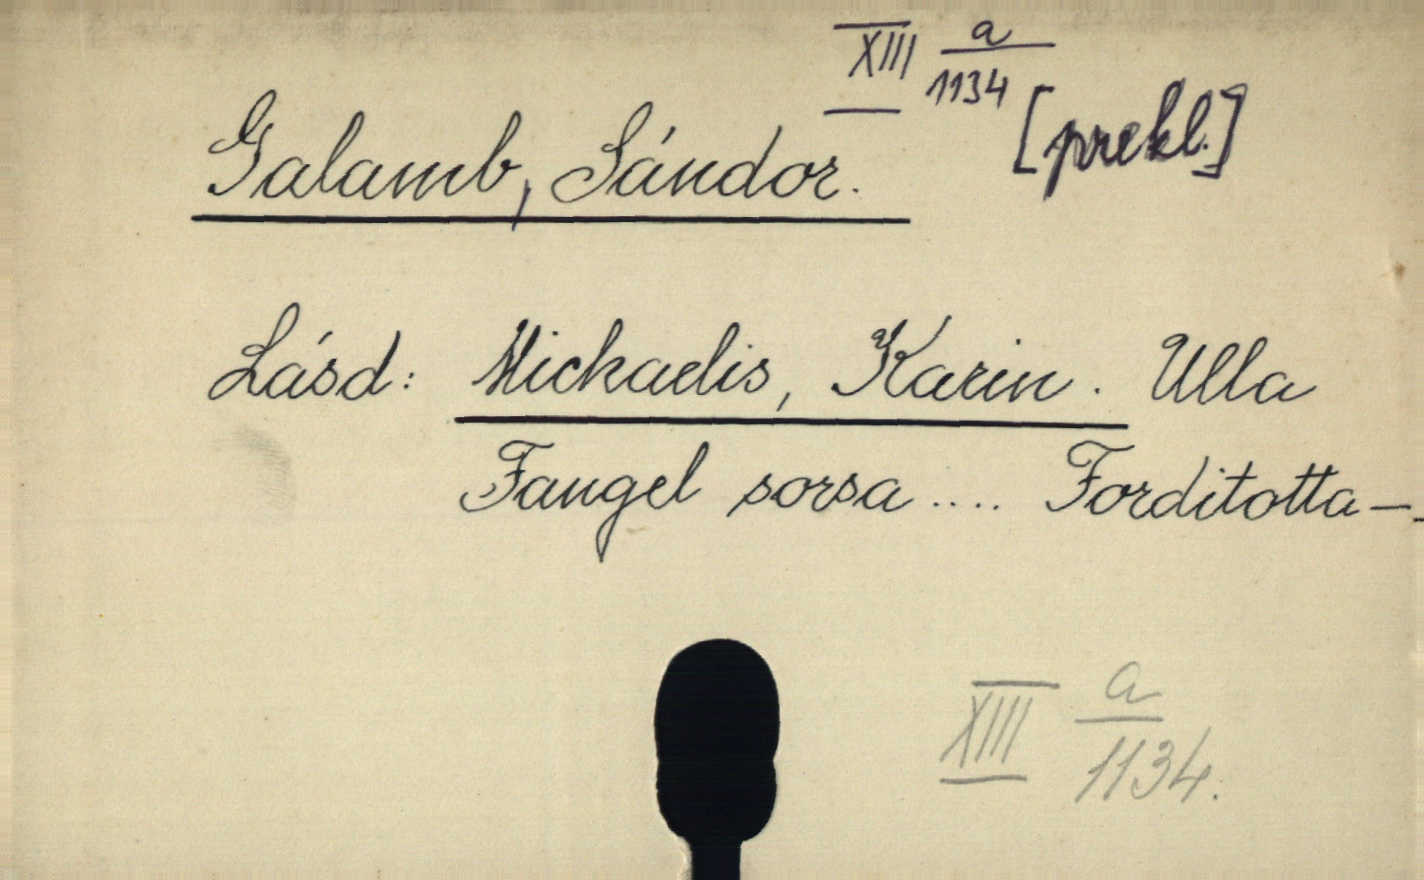 XIII a/1134
[prekl.]
Galamb, Sándor.
Lásd: Michaelis, Karin. Ulla
Fangel sorsa .... Forditotta —
XIII a/1134.